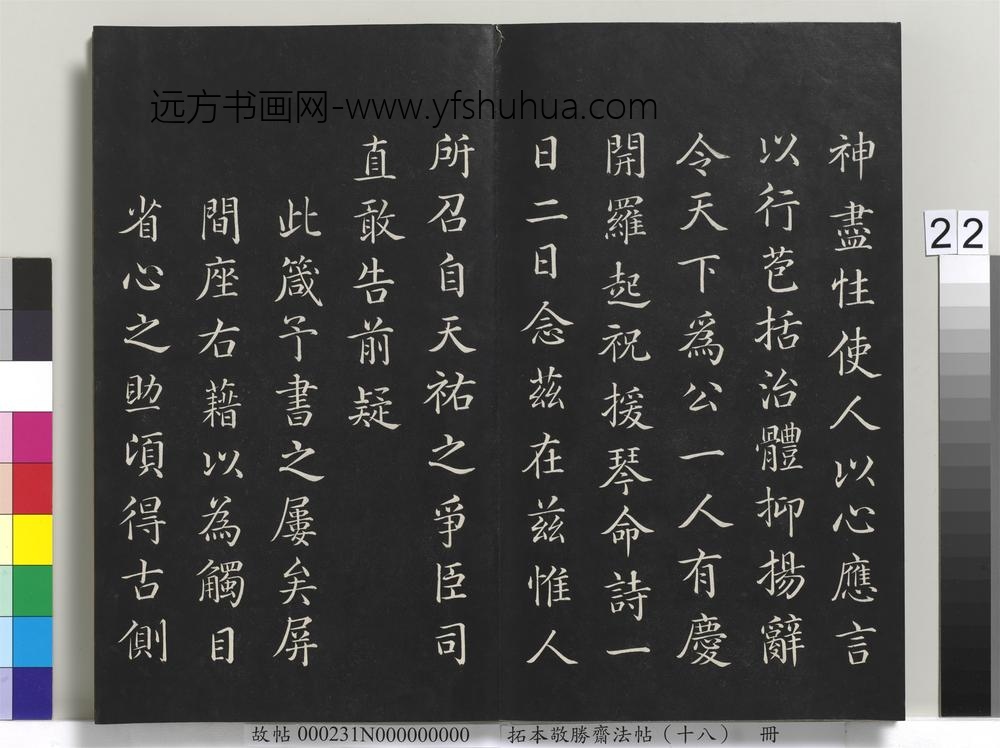 远方书画网-www.yfshuhua.com
神盡性使人以心應言
以行苞括治體抑揚辭
令天下爲公一人有慶
開羅起祝援琴命詩一
日二日念茲在茲惟人
所召自天祐之爭臣司
直敢告前疑
此箴予書之屢矣屏
間座右藉以為觸目
省心之助頃得古側
22
故帖 000231N000000000 拓本敬勝齋法帖（十八） 冊